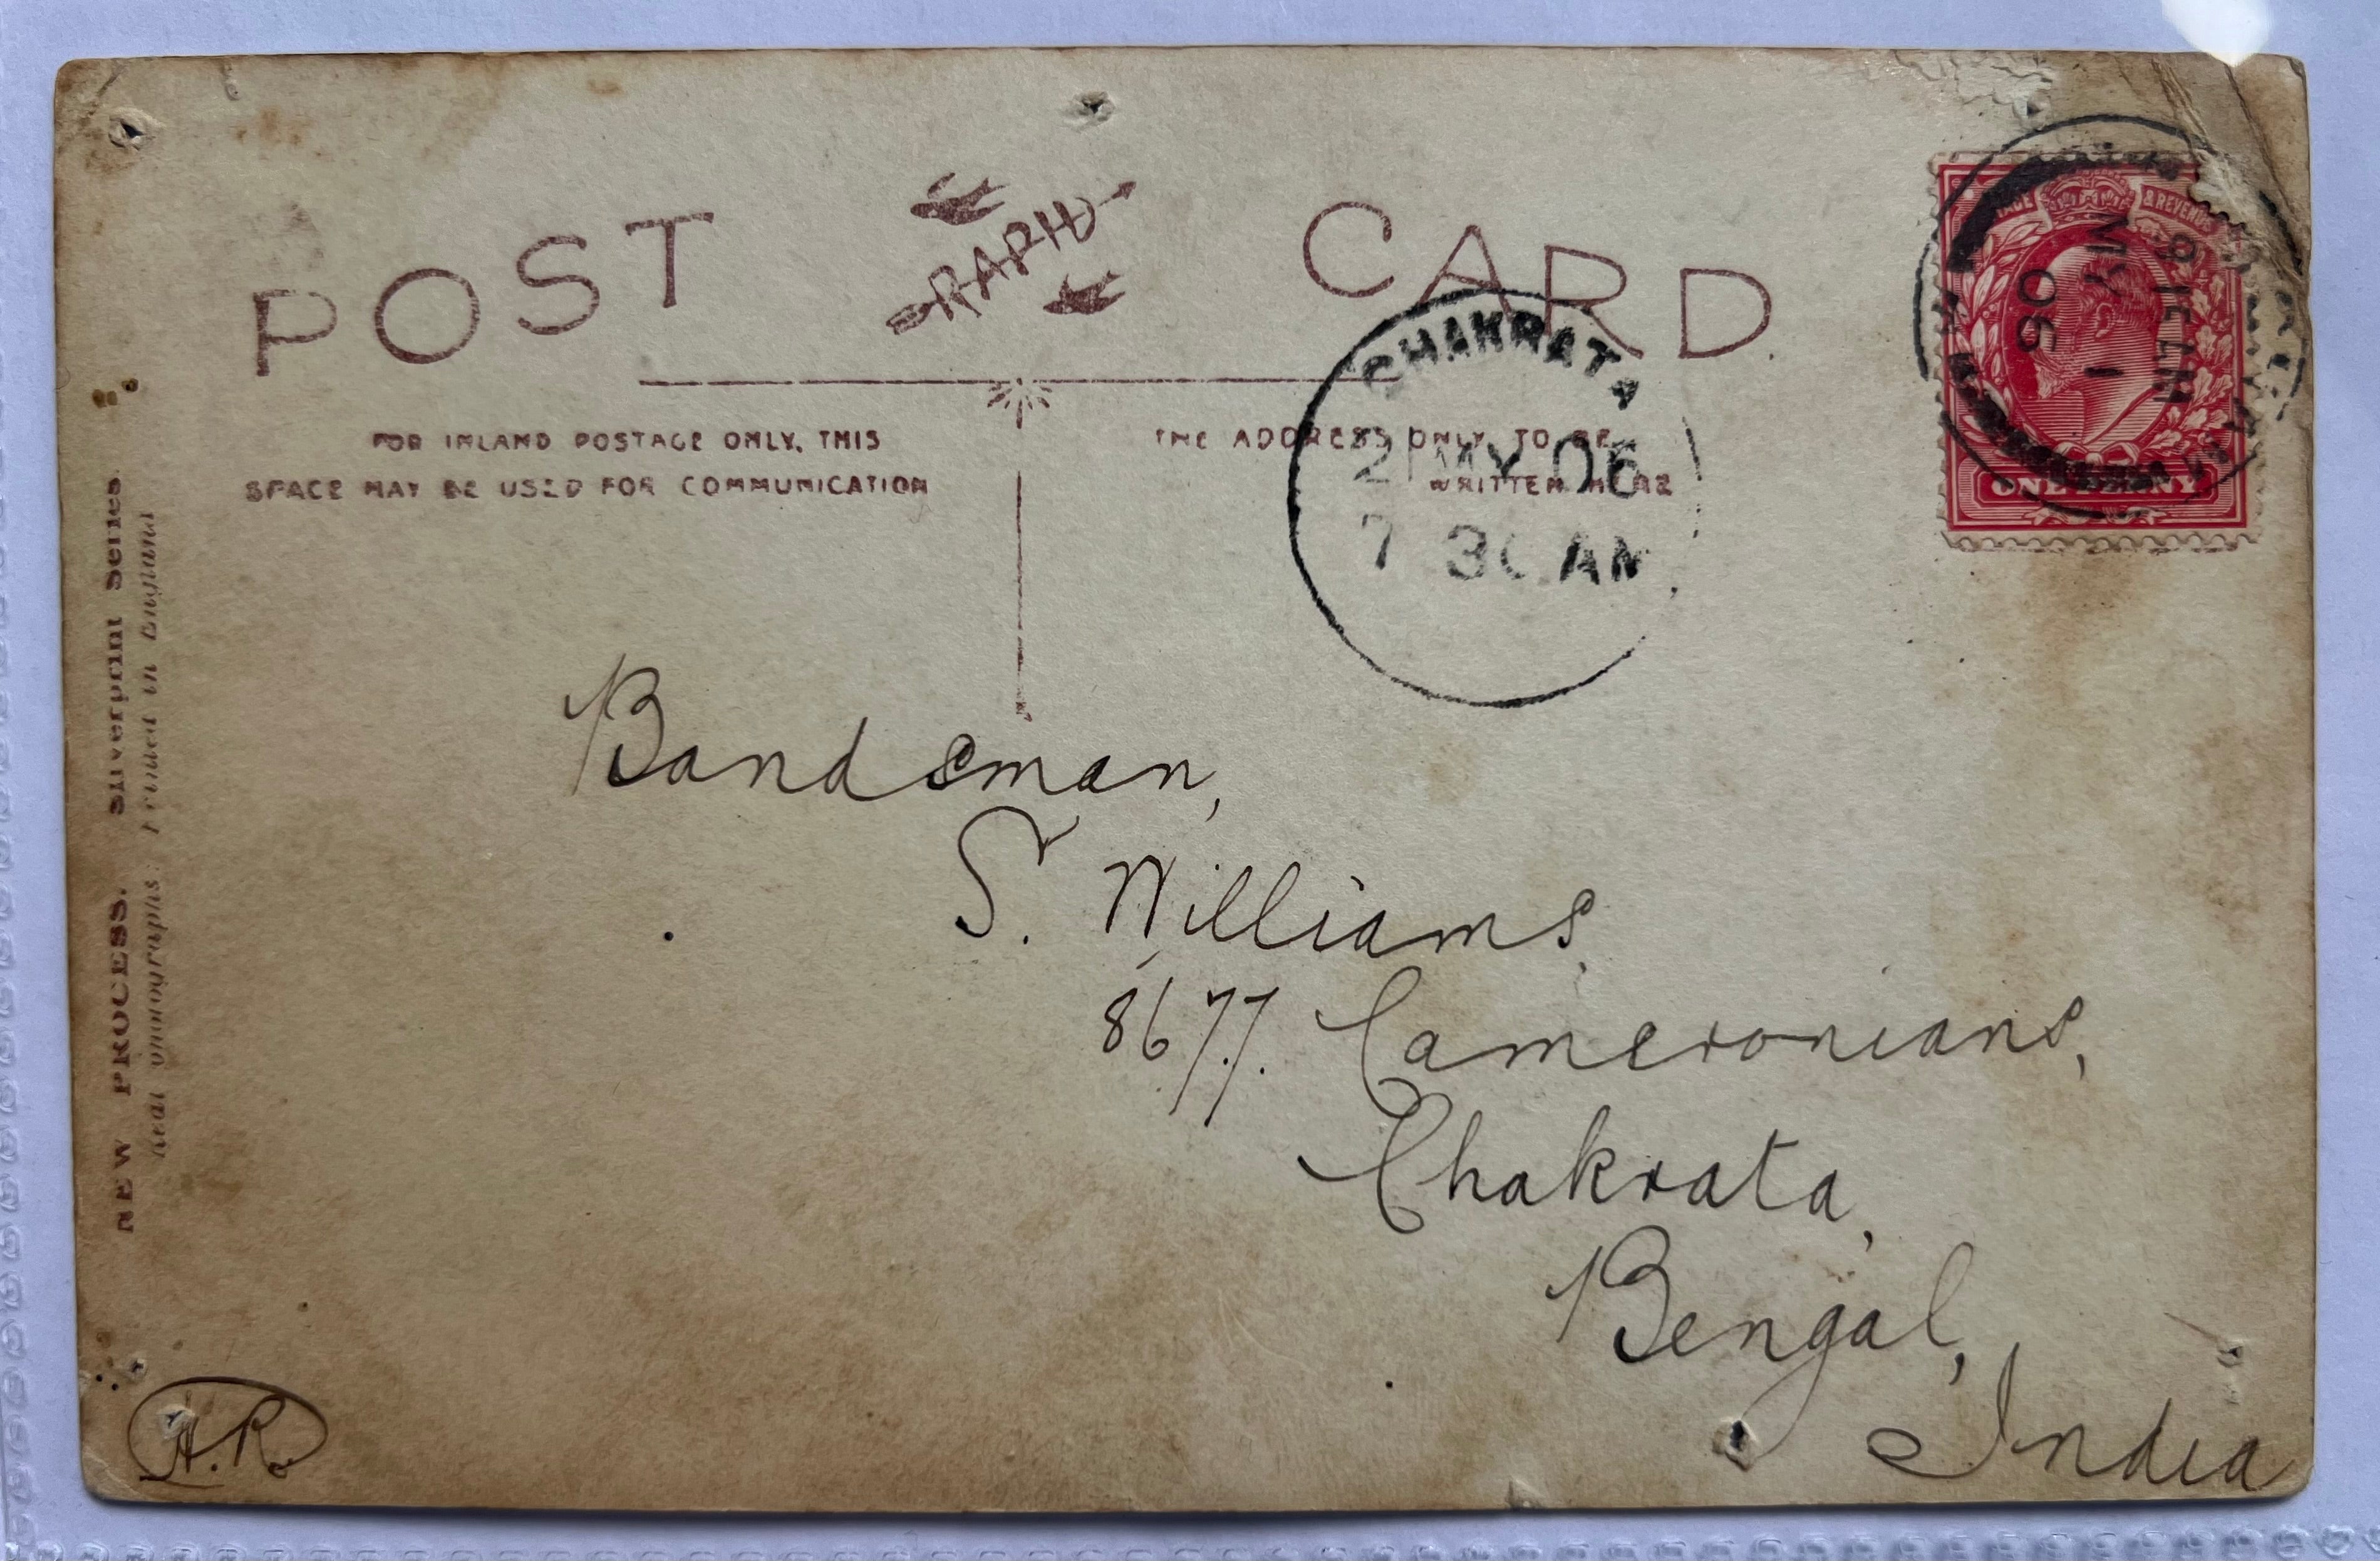 POST CARD.
RAPH
FOR INLAND POSTAGE ONLY, THIS
SPACE MAY BE USED FOR COMMUNICATION
THE ADDRESS ONLY TO BE
WRITTEN HERE
CHAKRATA
21 MY 06
7 30 AM
& REVENUE
ONE PENNY
MY 1
06
Bandsman,
S. Williams,
8677. Cameronians,
Chakrata,
Bengal,
India
A.R.
NEW PROCESS. Silverprint Series.
Real photographs. Printed in England